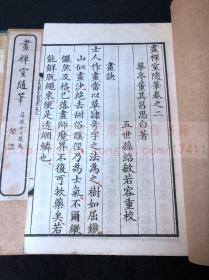 畫禪室隨筆卷之二
華亭董其昌思白著
五世孫紹敏若容重校
畫訣
士人作畫當以草隸奇字之法為之樹如屈鐵
山似畫沙絕去甜俗蹊徑乃為士氣不爾縱
儼然及格已落畫師魔界不復可救藥矣若
能解脫繩束便是透網鱗也
畫禪室隨筆